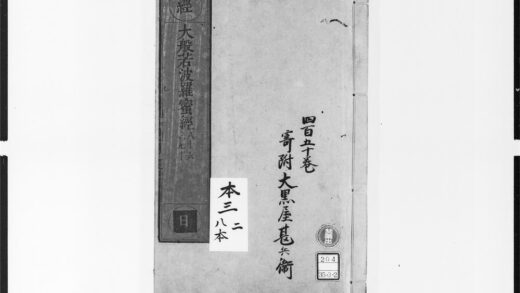 四百五十巻
寄附大黒屋甚兵衛
經
大般若波羅蜜經
日
本三二
八本
204